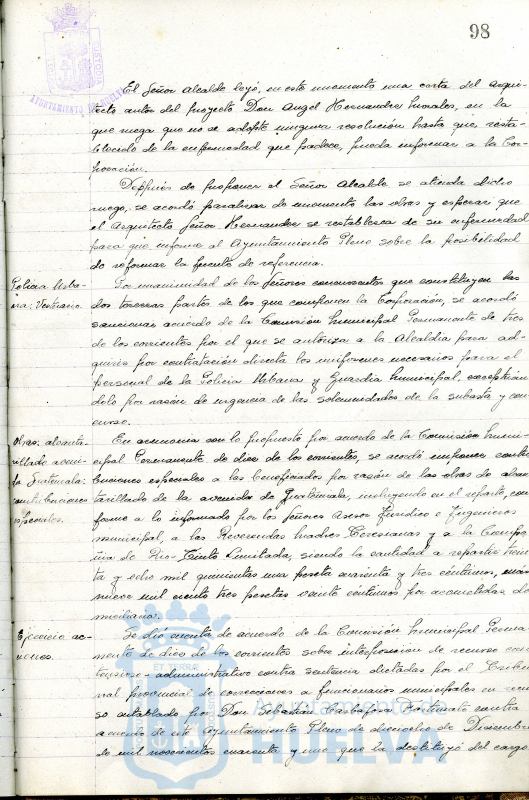 98
AYUNTAMIENTO DE HUELVA
El Señor Alcalde leyó, en este momento una carta del Arqui-
tecto autor del proyecto Don Angel Hernandez Morales, en la
que ruega que no se adopte ninguna resolución hasta que, resta-
blecido de la enfermedad que padece, pueda informar a la Cor-
poración.
Después de proponer el Señor Alcalde se atienda dicho
ruego, se acordó paralizar de momento las obras y esperar que
el Arquitecto Señor Hernandez se restablezca de su enfermedad
para que informe al Ayuntamiento Pleno sobre la posibilidad
de reformar la fuente de referencia.
Policia Urba-
na: Vestuario.
Por unanimidad de los Señores concurrentes que constituyen las
dos terceras partes de los que componen la Corporación, se acordó
sancionar acuerdo de la Comisión Municipal Permanente de tres
de los corrientes por el que se autoriza a la Alcaldia para ad-
quirir por contratación directa los uniformes necesarios para el
personal de la Policia Urbana y Guardia Municipal, exceptuan-
dolo por razón de urgencia de las solemnidades de la subasta y con-
curso.
Obras alcanta-
rillado aveni-
da Guatemala:
contribuciones
especiales.
En armonia con lo propuesto por acuerdo de la Comisión Muni-
cipal Permanente de diez de los corrientes, se acordó imponer contri-
buciones especiales a los beneficiados por razón de las obras de alcan-
tarillado de la avenida de Guatemala, incluyendo en el reparto, con-
forme a lo informado por los Señores Asesor Juridico e Ingeniero
municipal, a las Reverendas Madres Teresianas y a la Compa-
ñia de Rio-Tinto Limitada, siendo la cantidad a repartir trein-
ta y ocho mil quinientas una peseta cuarenta y tres céntimos, más
nueve mil ciento tres pesetas veinte centimos por acometidas do-
miciliarias.
Ejercicio ac-
ciones.
Se dió cuenta de acuerdo de la Comisión Municipal Perma-
nente de diez de los corrientes sobre interposición de recurso con-
tencioso-administrativo contra sentencia dictada por el Tribu-
nal provincial de correcciones a funcionarios municipales en recur-
so entablado por Don Sebastián Carbajosa contra
acuerdo de este Ayuntamiento Pleno de diecisiete de Diciembre
de mil novecientos cuarenta y uno que la destituyó del cargo
Ayuntamiento de
HUELVA